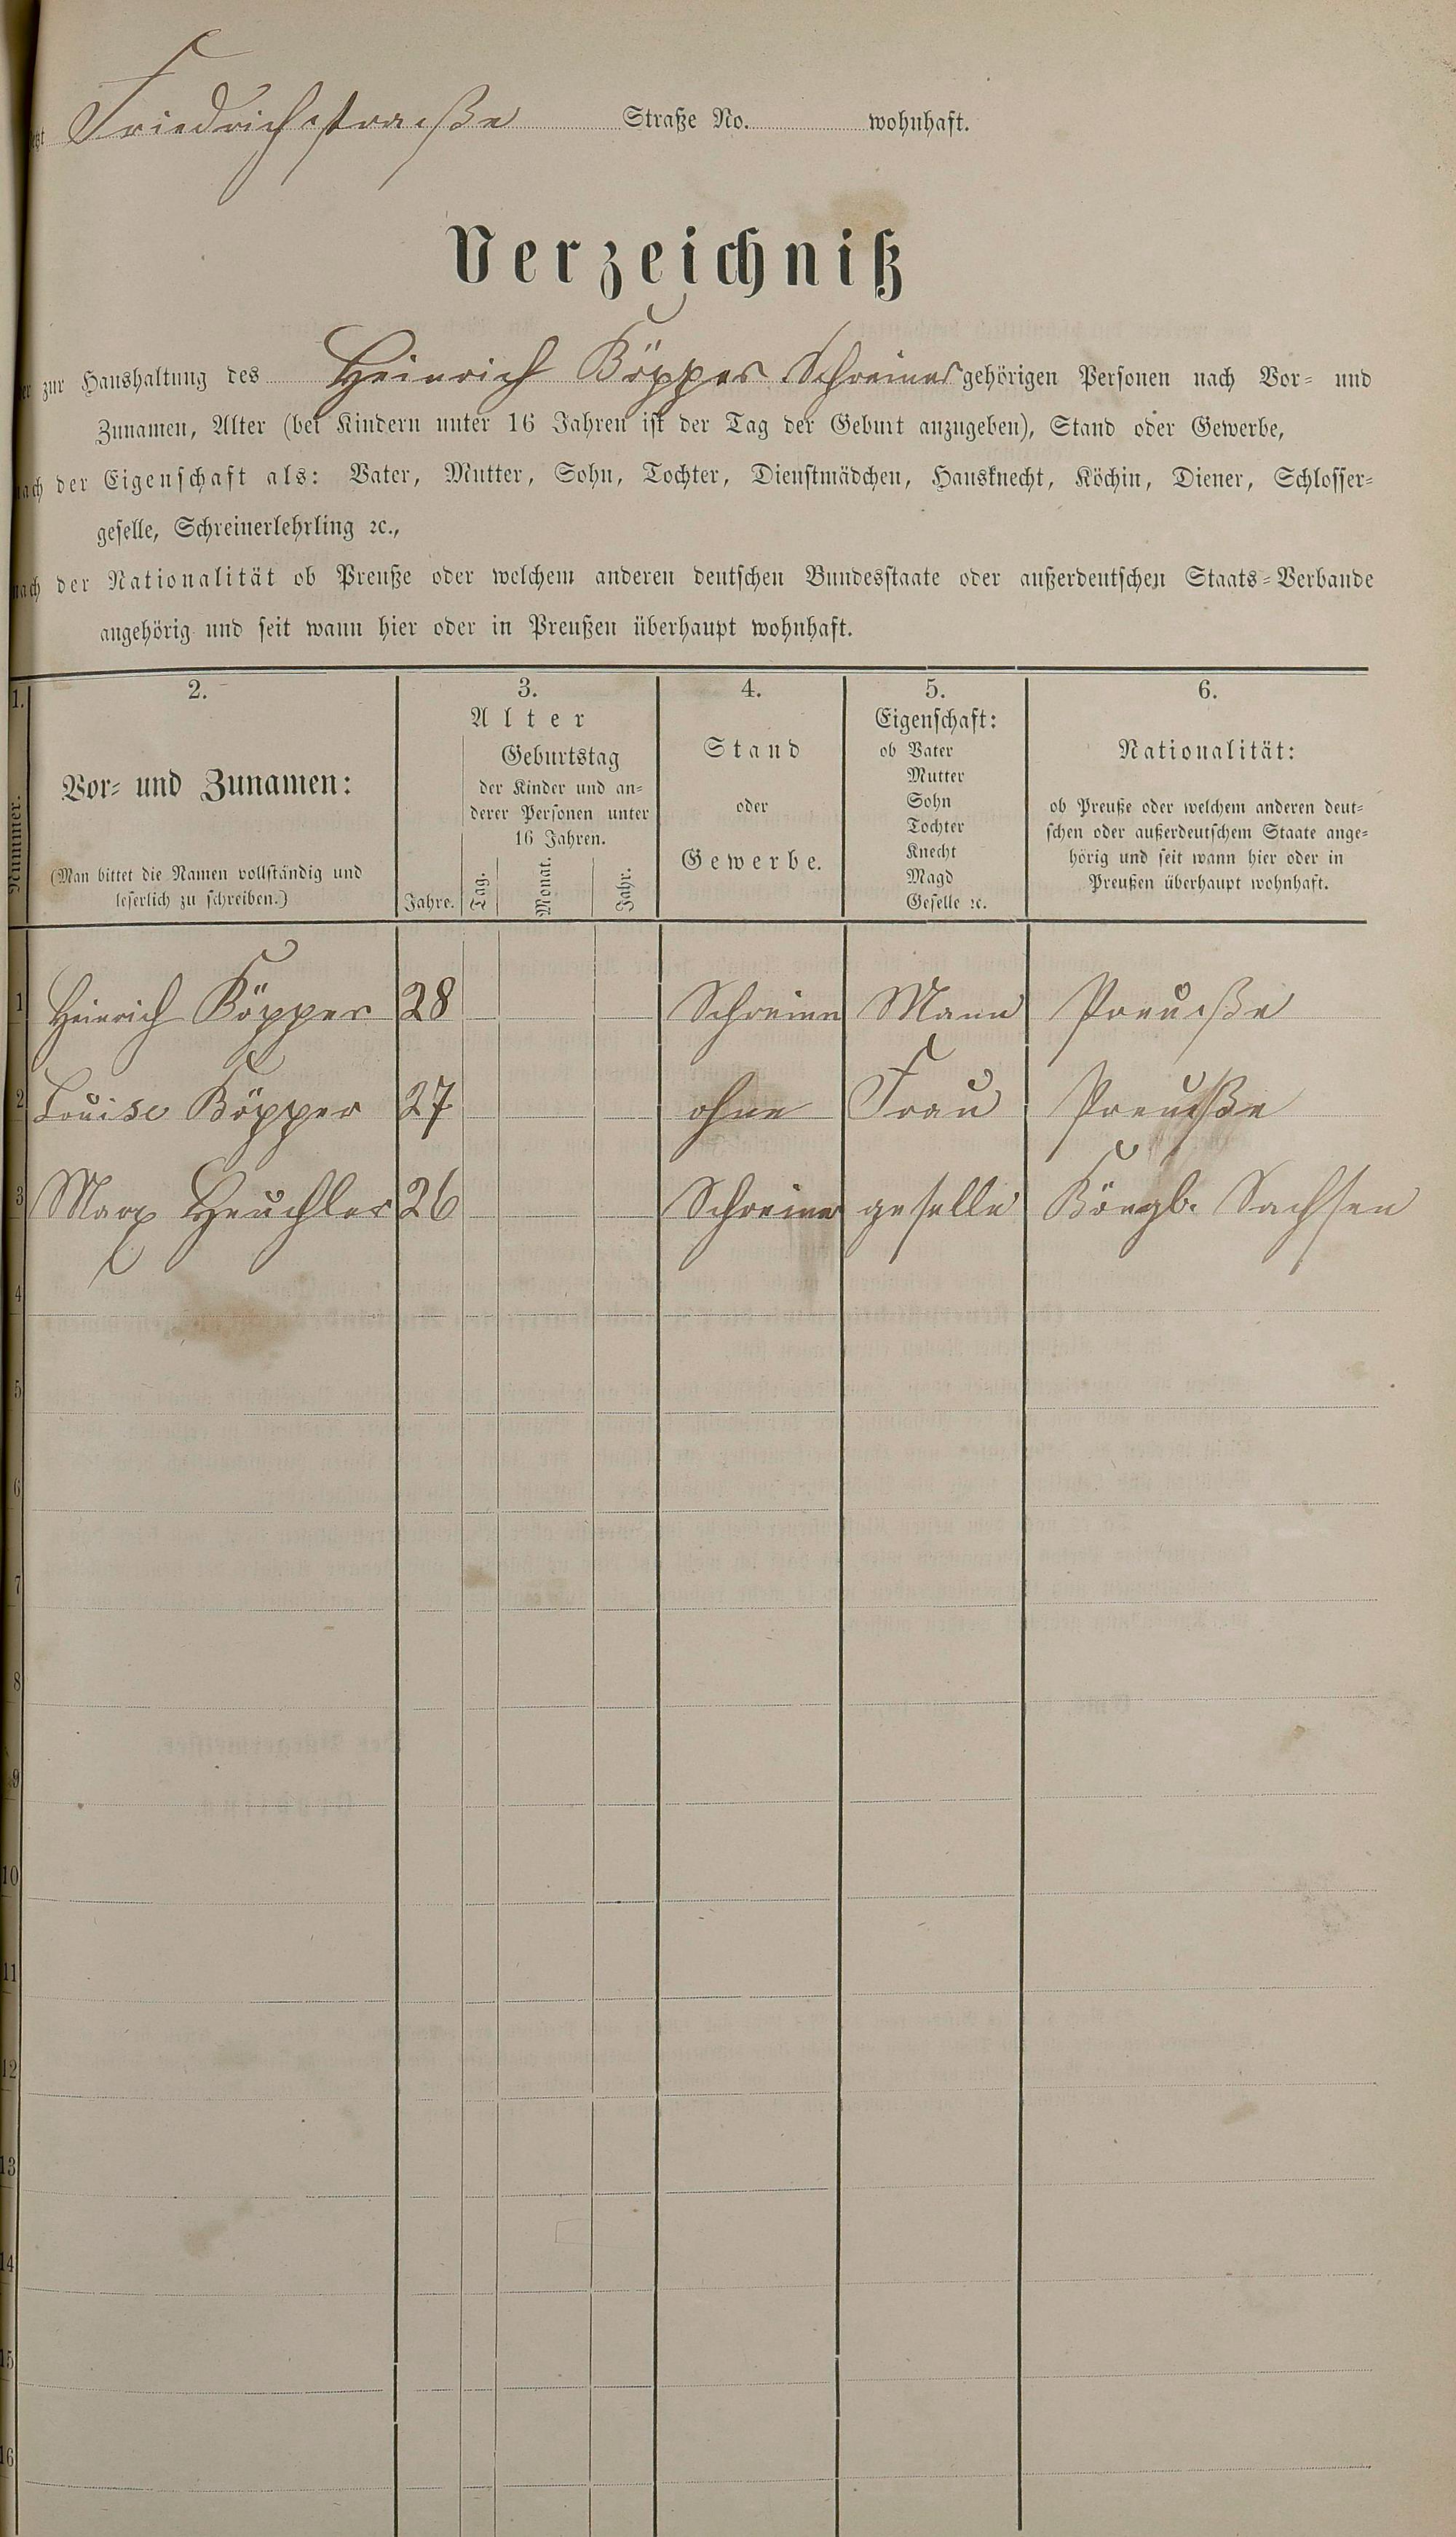 Friedrichstraße Straße No. wohnhaft.
Verzeichniß
zur Haushaltung des Heinrich Köpper Schreiner gehörigen Personen nach Vor- und
Zunamen, Alter (bei Kindern unter 16 Jahren ist der Tag der Geburt anzugeben), Stand oder Gewerbe,
nach der Eigenschaft als: Vater, Mutter, Sohn, Tochter, Dienstmädchen, Hausknecht, Köchin, Diener, Schlosser-
geselle, Schreinerlehrling ꝛc.,
nach der Nationalität ob Preuße oder welchem anderen deutschen Bundesstaate oder außerdeutschen Staats-Verbande
angehörig und seit wann hier oder in Preußen überhaupt wohnhaft.
1. 2. 3. 4. 5. 6.
Nummer.
Vor- und Zunamen:
(Man bittet die Namen vollständig und
leserlich zu schreiben.)
Alter
Jahre.
Geburtstag
der Kinder und an-
derer Personen unter
16 Jahren.
Tag. Monat. Jahr.
Stand
oder
Gewerbe.
Eigenschaft:
ob Vater
Mutter
Sohn
Tochter
Knecht
Magd
Geselle ꝛc.
Nationalität:
ob Preuße oder welchem anderen deut-
schen oder außerdeutschem Staate ange-
hörig und seit wann hier oder in
Preußen überhaupt wohnhaft.
1 Heinrich Köpper 28 Schreiner Mann Preuße
2 Louise Köpper 27 ohne Frau Preuße
3 Marx Heuchler 26 Schreiner geselle Köngl. Sachsen
4
5
6
7
8
9
10
11
12
13
14
15
16